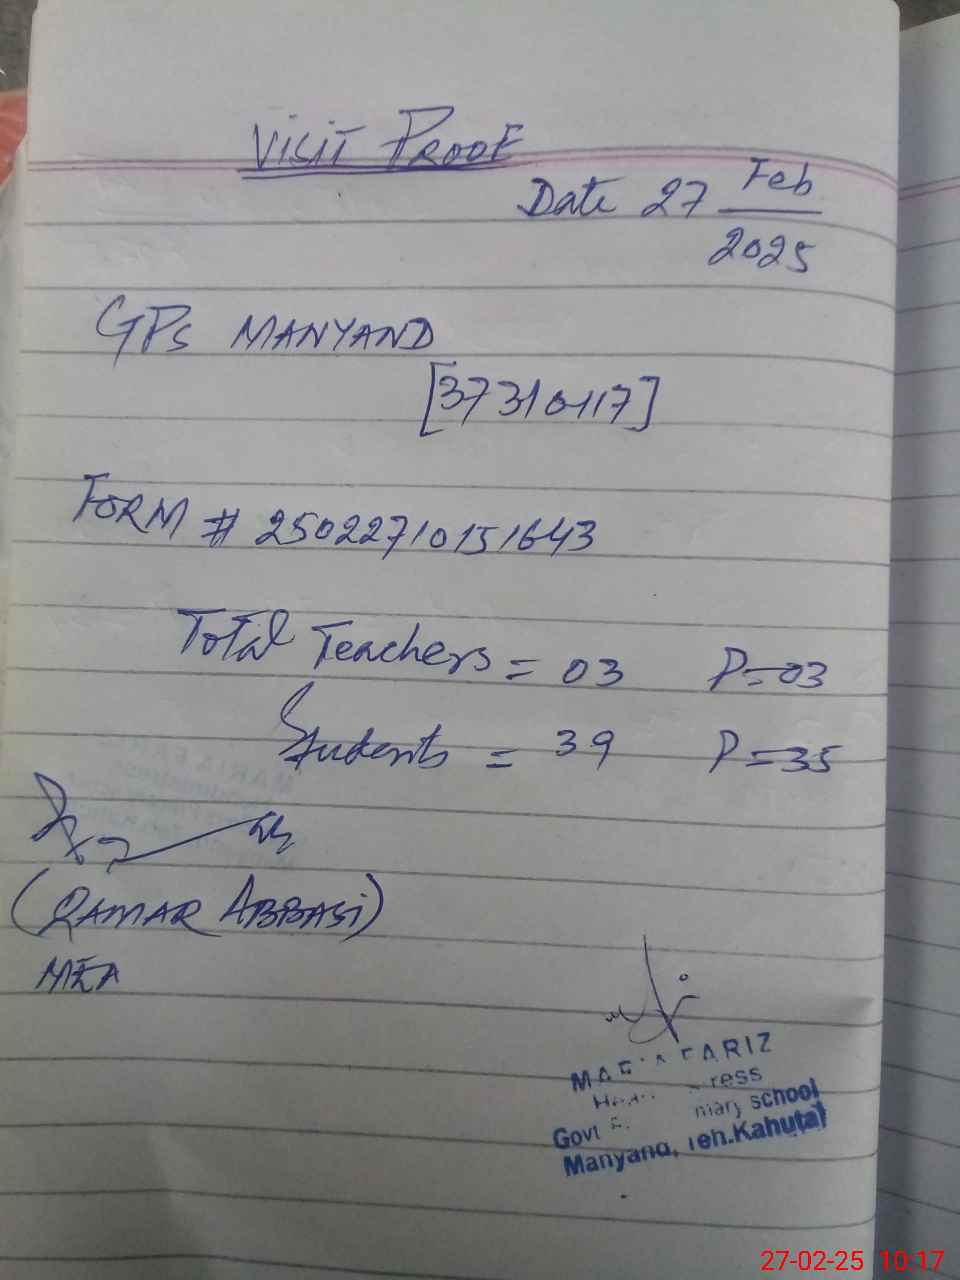 VISIT PROOF
Date 27 Feb
2025
GPS MANYAND
[37310117]
FORM # 25022710151643
Total Teachers = 03 P=03
Students = 39 P=35
(QAMAR ABBASI)
MEA
FARIZ
school
Govt
Manyand, Teh.Kahuta
27-02-25 10:17